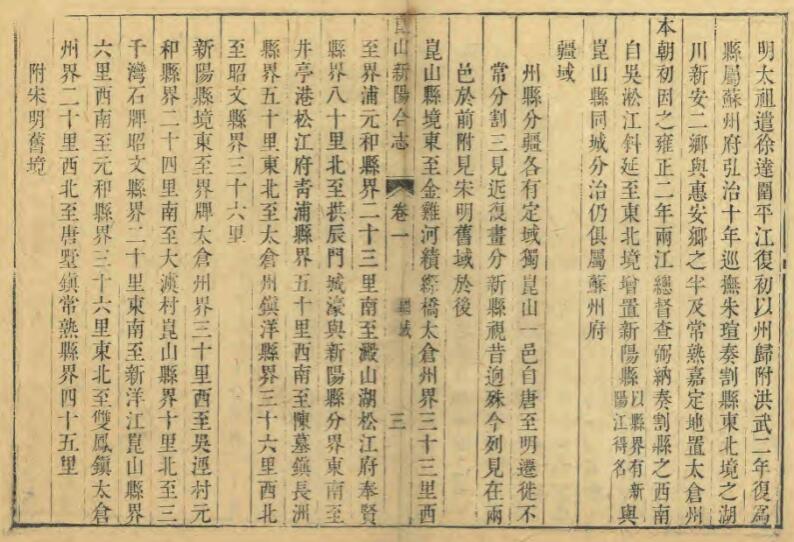 明太祖遣徐達圍平江復初以州歸附洪武二年復爲
縣屬蘇州府弘治十年巡撫朱瑄奏割縣東北境之湖
川新安二鄉與惠安鄉之半及常熟嘉定地置太倉州
本朝初因之雍正二年兩江總督查弼納奏割縣之西南
自吳淞江斜延至東北境增置新陽縣以縣界有新陽江得名與
崑山縣同城分治仍俱屬蘇州府
疆域
州縣分疆各有定域獨崑山一邑自唐至明遷徙不
常分割三見近復畫分新縣視昔迥殊今列見在兩
邑於前附見宋明舊域於後
崑山縣境東至金雞河積繇橋太倉州界三十三里西
崑山新陽合志 卷一 疆域 三
至界浦元和縣界二十三里南至澱山湖松江府奉賢
縣界八十里北至拱辰門城濠與新陽縣分界東南至
井亭港松江府青浦縣界五十里西南至陳墓鎮長洲
縣界五十里東北至太倉州鎮洋縣界三十六里西北
至昭文縣界三十六里
新陽縣境東至界牌太倉州界三十里西至吳涇村元
和縣界二十四里南至大滇村崑山縣界十里北至三
千灣石牌昭文縣界二十里東南至新洋江崑山縣界
六里西南至元和縣界三十六里東北至雙鳳鎮太倉
州界二十里西北至唐墅鎮常熟縣界四十五里
附宋明舊境